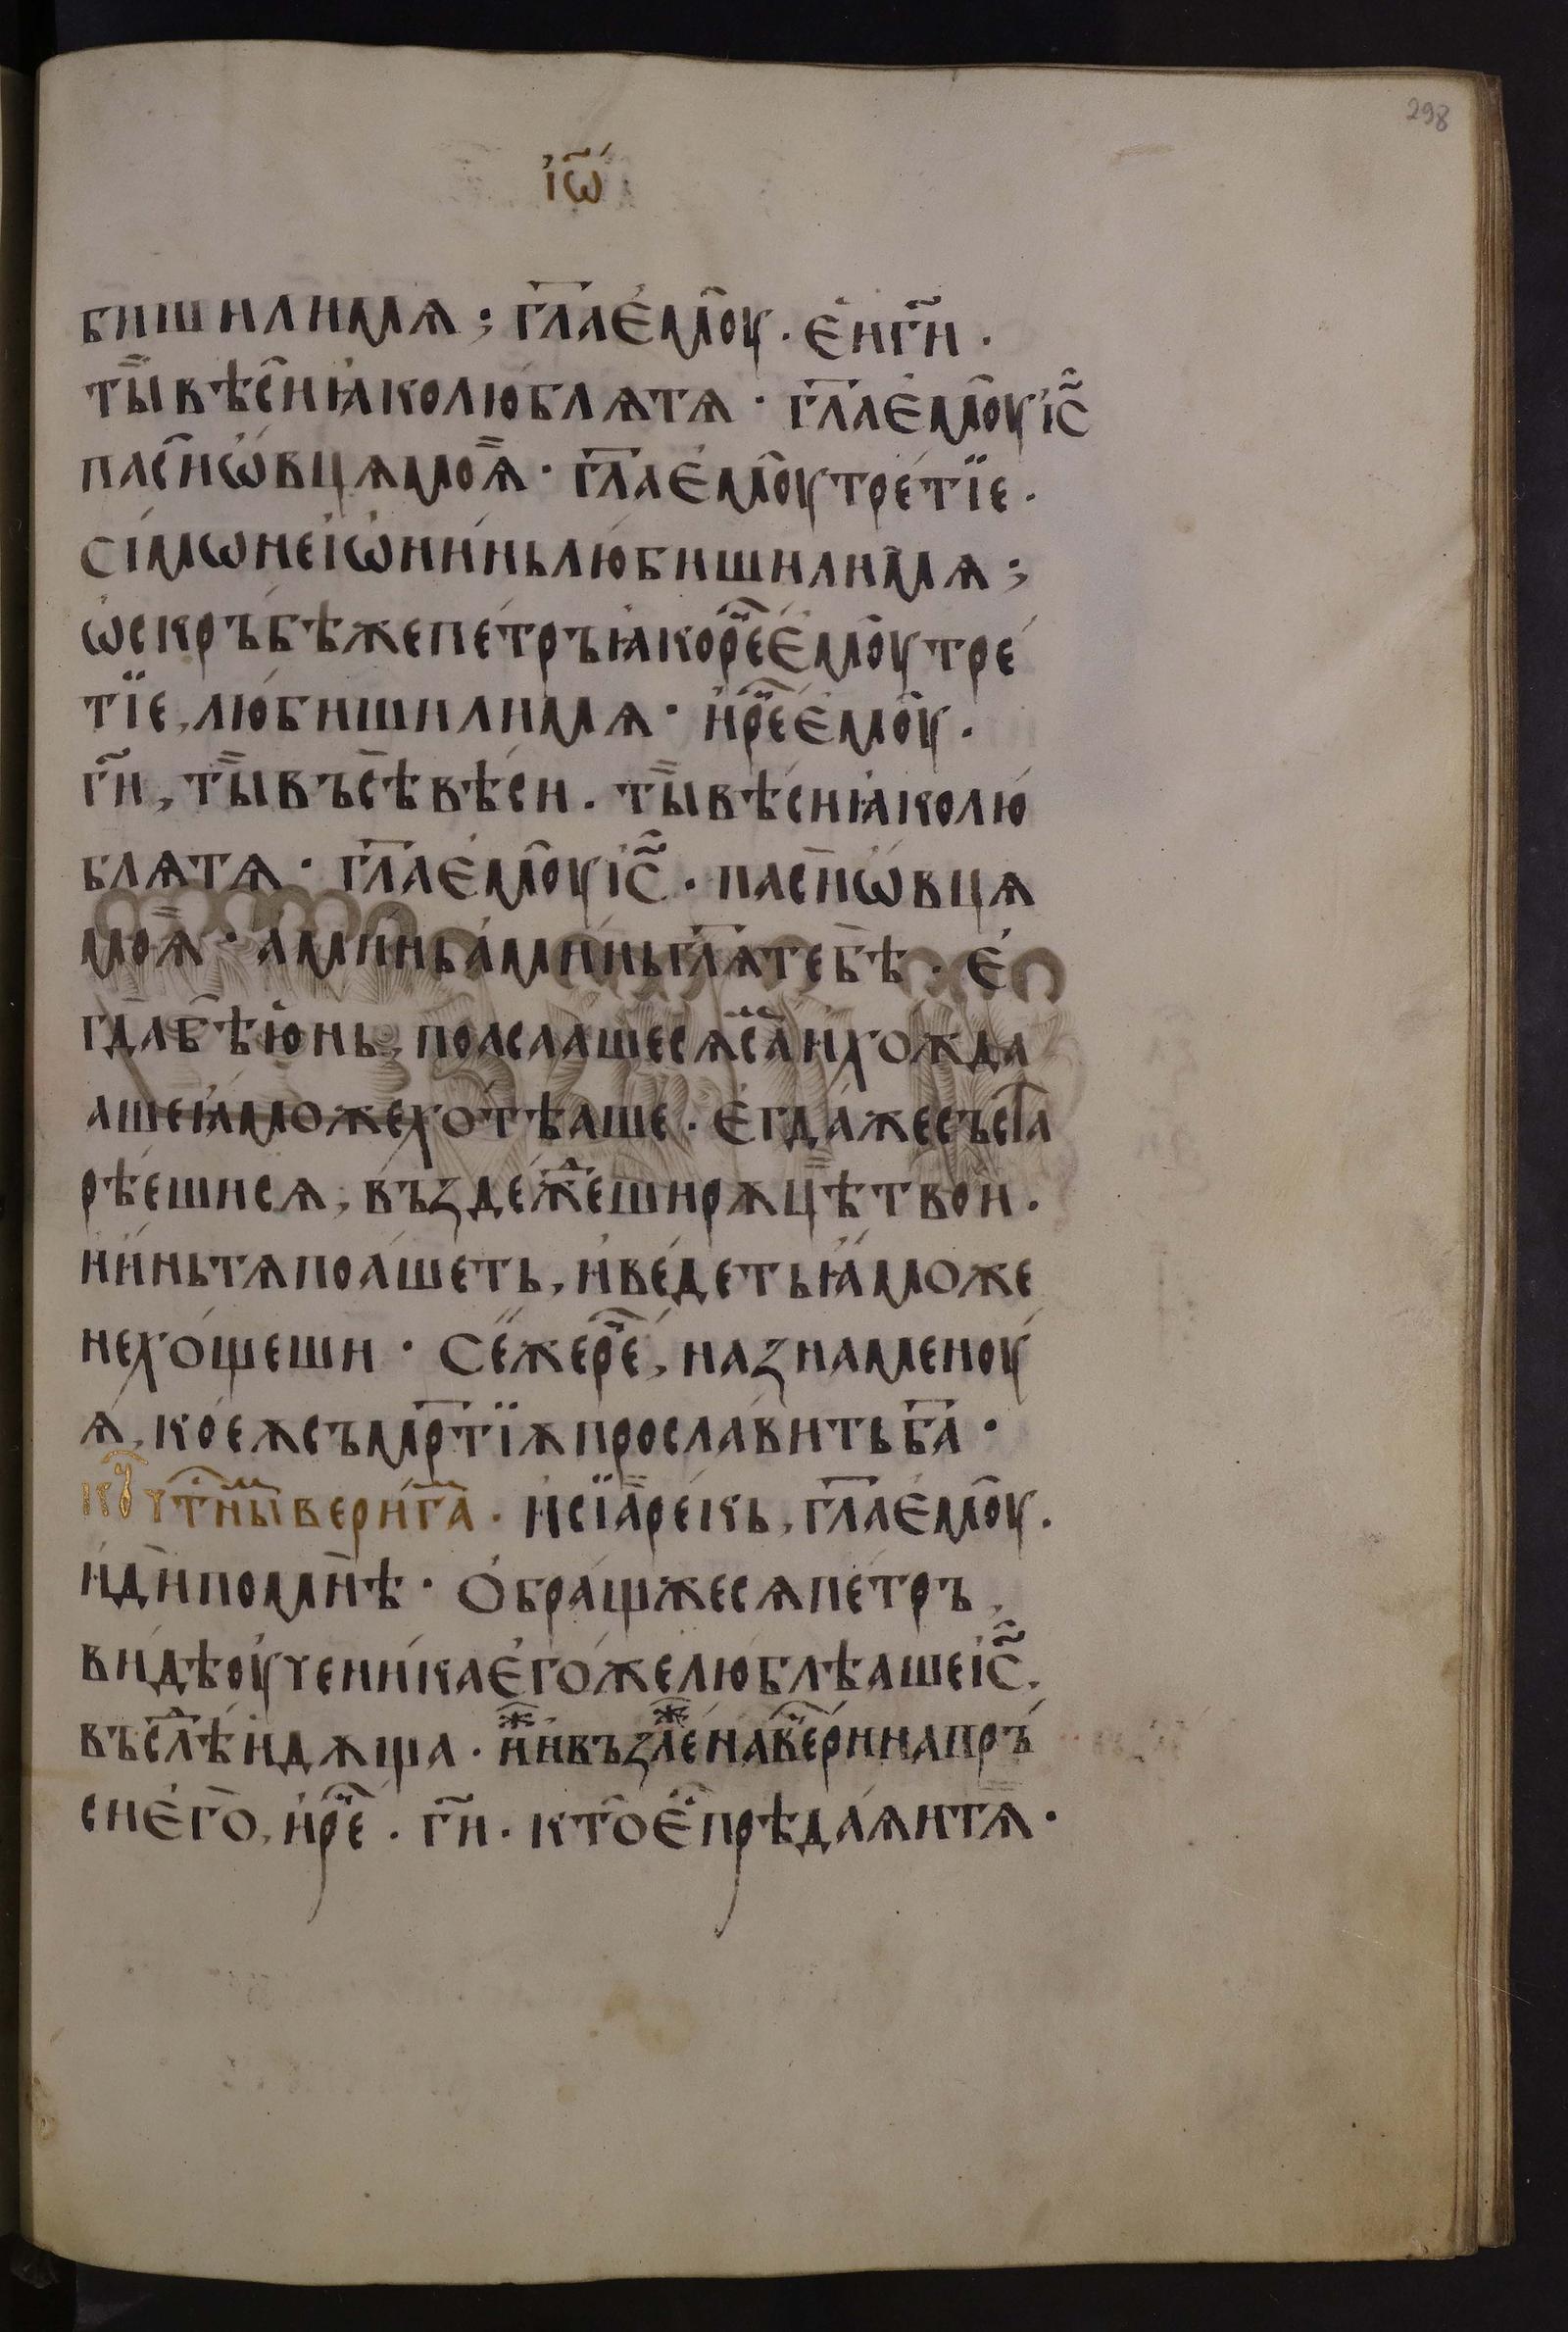 298
і҆ѡ҃
биши ли мѧ; гл҃а є҆моу҆. є҆и г҃и.
ты̏ вѣси ꙗ҆ко люблѧ тѧ· гл҃а є҆моу҆ і҆с҃
паси ѡ҆вцѧ моѧ̏· гл҃а є҆моу҆ тре́тїе.
сі́мѡне і҆ѡ҆ни́нь лю́биши ли мѧ;
ѡ҆скръ́бѣ же пе́тръ ꙗ҆ко ре҃ є҆моу҆ тре́
тїе, лю́биши ли мѧ· и҆ ре҃ є҆моу҆.
г҃и, ты̏ въсѣ вѣ́си. ты̏ вѣ́си ꙗ҆ко лю́
блѧ тѧ· гл҃а є҆моу҆ і҆с҃. паси ѡ҆вцѧ
моѧ̏· а҆ми́нь а҆ми́нь гл҃ѧ тебѣ· є҆
гда бѣ ю҆нь, поꙗсаашесѧ са҃ и҆ хожда
аше ꙗ҆може хотѣаше. є҆гда́же съста
рѣ́ешисѧ, въздеже́ши рѫцѣ̏ твои.
и҆ и҆нь тѧ поꙗ́шеть, и҆ веде́ть ꙗ҆може
не хо́щеши· се́ же ре҃, назнаменоу́
ѧ҆, ко́еѫ съмр҃тїѫ просла́вить ба҃·
коу у҃тны̏ вери́га҃. и҆ сїа̏ ре́кь, гл҃а є҆моу҆.
и҆ди по мнѣ· о҆бра́щжесѧ пе́тръ,
ви́дѣ оу҆чени́ка є҆го́же люблѣаше і҆с҃,
въслѣ и҆дѫща. и҆и възле́ на ве́ри на пръ́
си є҆го, и҆ ре҃. г҃и. кто є҃ прѣда́ѧи тѧ̏·